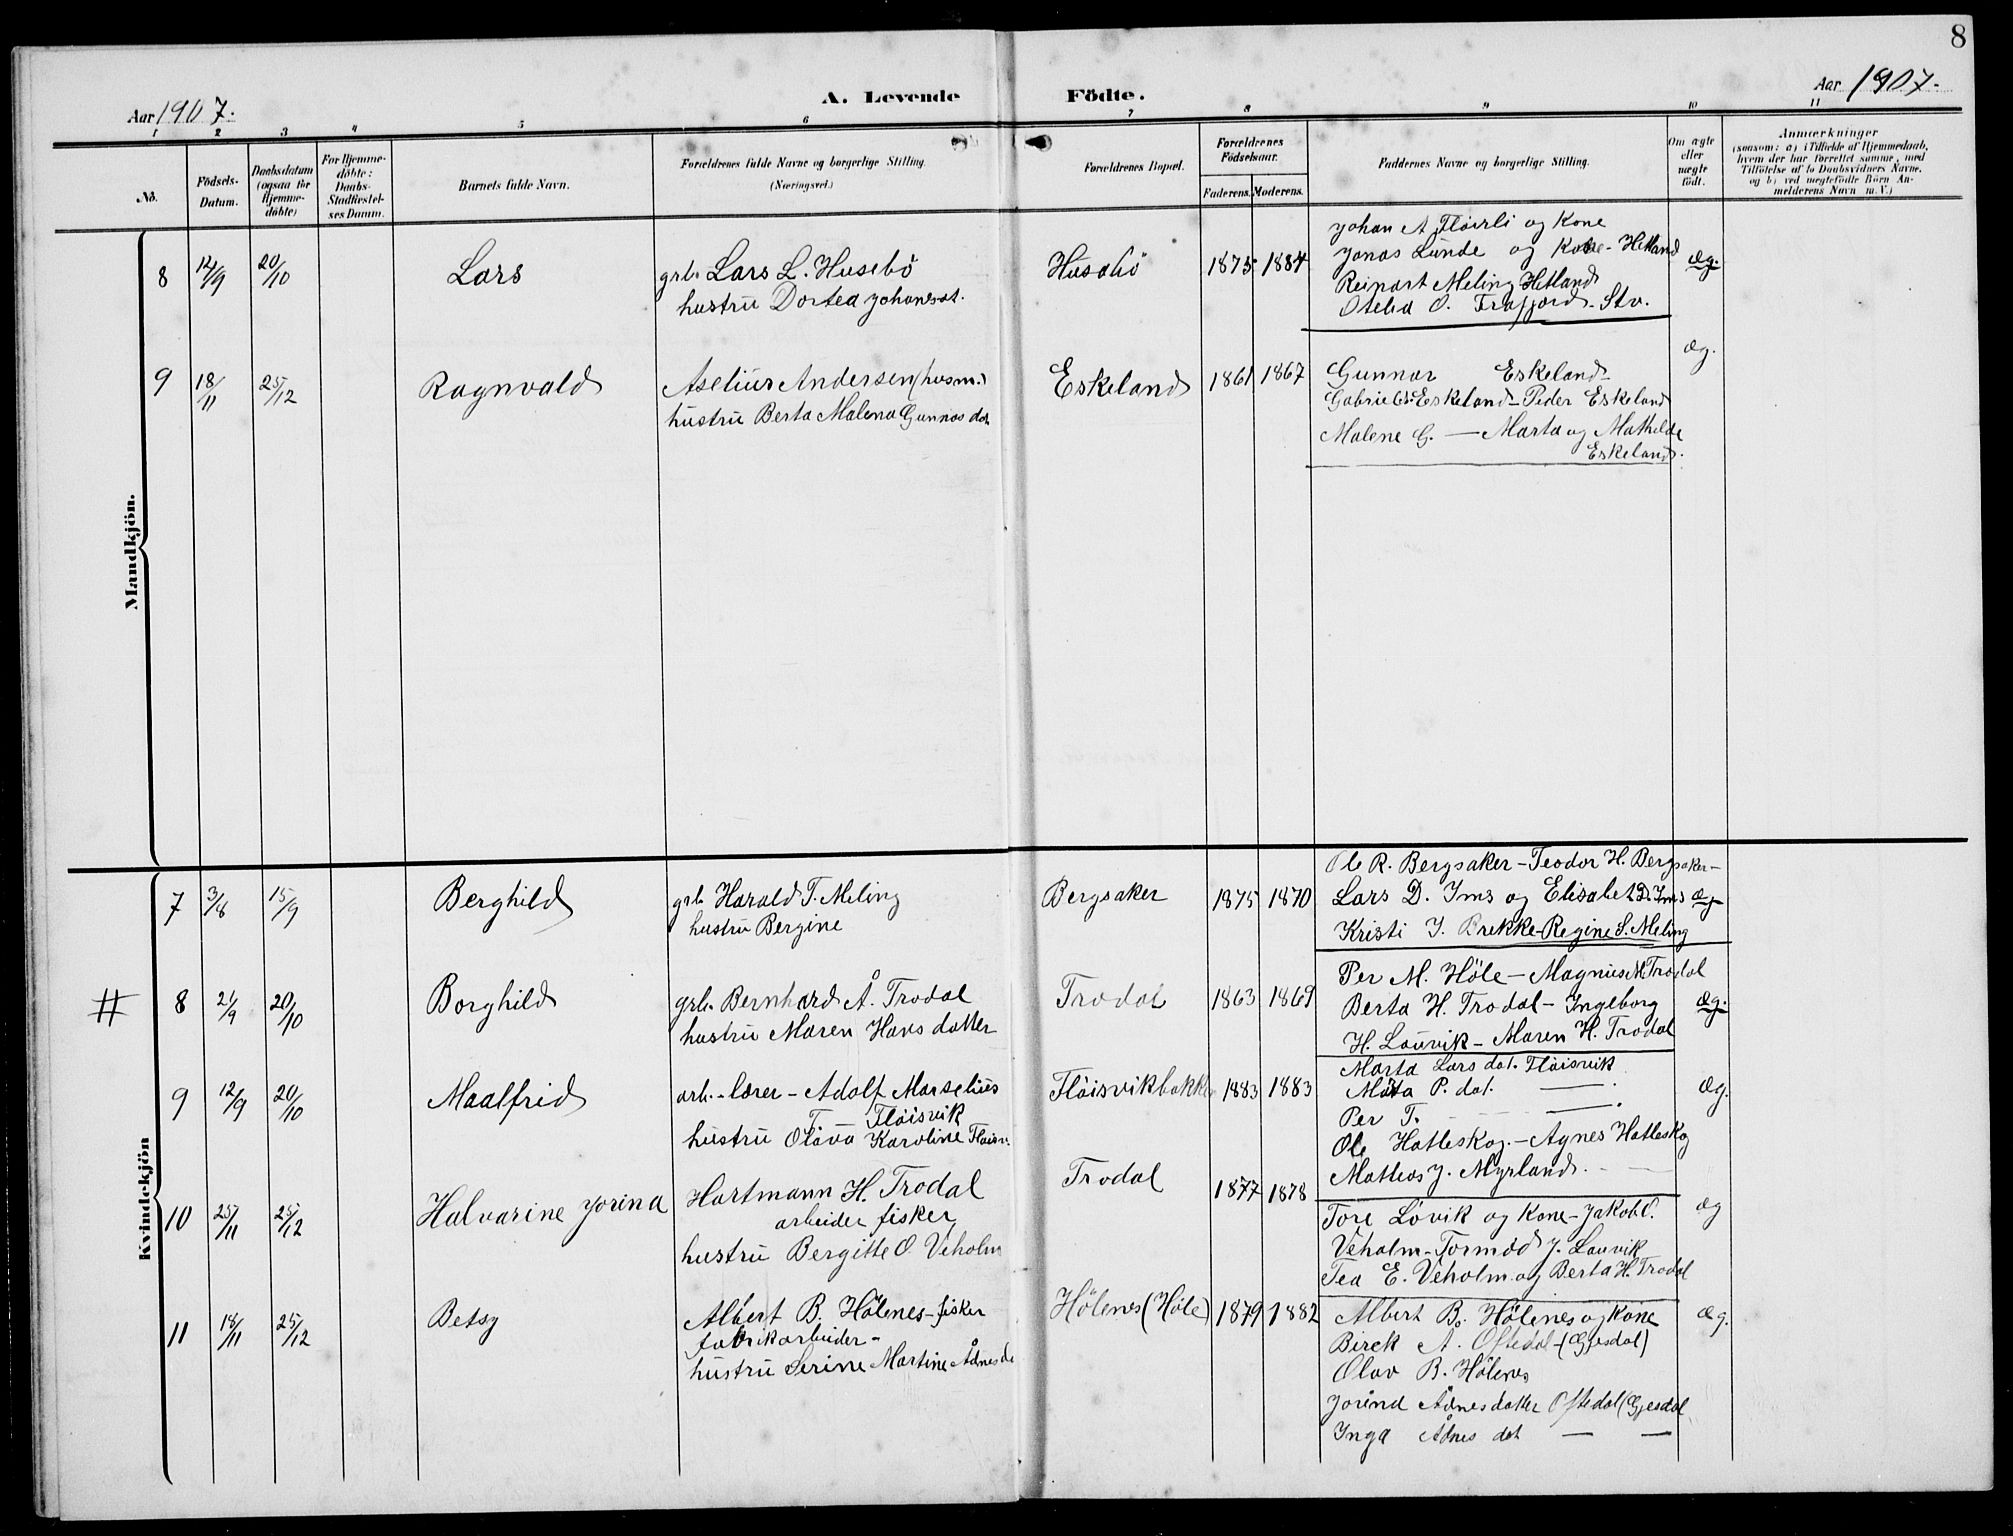 8
Aar 1907.
A. Levende
Födte.
Aar 1907.
1 2 3 4 5 6 7 8 9 10 11
No.
Födsels-
Datum.
Daabsdatum
(ogsaa for
Hjemme-
döbte)
For Hjemme-
döbte:
Daabs-
Stadfæstel-
ses Datum.
Barnets fulde Navn.
Forældrenes fulde Navne og borgerlige Stilling.
(Næringsvei.)
Forældrenes Bopæl.
Forældrenes
Födselsaar.
Faderens. Moderens.
Faddernes Navne og borgerlige Stilling.
Om ægte
eller
uægte
født.
Anmærkninger
(saasom: a) i Tilfælde af Hjemmedaab,
hvem der har forrettet samme, med
Tilföielse af to Daabsvidners Navne.
og b) ved uægtefödte Börn An-
melderens Navn m. V.)
Mandkjön.
8 12/9 20/10 Lars
grb. Lars L. Husebö
hustru Dortea Johanesdt.
Husebö 1875 1884
Johan A Flöirli og Kone
Jonas Lunde og Kone - Hetland
Reinart Meling Hetland
Otelia O. Frafjord - Stv.
æg.
9 18/11 25/12 Ragnvald
Aselius Andersen (husm.)
hustru Berta Malena Gunnas dat.
Eskeland 1861 1867
Gunnar Eskeland
Gabriel Eskeland - Peder Eskeland
Malene G. — Marta og Mathilde
Eskeland.
æg.
Kvindekjön
7 3/8 15/9 Berghild
grb. Harald T. Meling
hustru Bergine
Bergsaker 1875 1870
Ole R. Bergsaker - Teodor H. Bergsaker -
Lars D. Ims og Elisabet D. Ims
Kristi J. Brekke - Regine S. Meling
æg
# 8 21/9 20/10 Borghild
grb. Bernhard Å. Trodal
hustru Maren Hans datter
Trodal 1863 1869
Per M. Höle - Magnus M. Trodal
Berta H. Trodal - Ingeborg
H. Lauvik - Maren H. Trodal
æg.
9 12/9 20/10 Maalfrid
arb. - lærer - Adolf Marselius
T. Flöisvik
hustru Olava Karoline Flöisv.
Flöisvikbakke 1883 1883
Marta Lars dat. Flöisvik
Marta P. dat. —
Per T. —
Ole Hatleskog. - Agnes Hatleskog
Matteas J. Myrland.
æg.
10 25/11 25/12 Halvarine Jorina
Hartmann H. Trodal
arbeider fisker
hustru Bergitte O. Veholm
Trodal 1877 1878
Tore Lövik og Kone - Jakob O.
Veholm - Tormod J. Lauvik
Tea E. Veholm og Berta H. Trodal
æg
11 18/11 25/12 Betsy
Albert B. Hölenes - fisker
fabrikarbeider -
hustru Serine Martine Ådnes da
Hölenes (Höle) 1879 1882
Albert B. Hölenes og Kone
Birek A. Oftedal - (Gjesdal)
Olav B. Hölenes
Jorina Ådnesdatter Oftedal (Gjesdal
Inga Ådnes dat — —
æg.